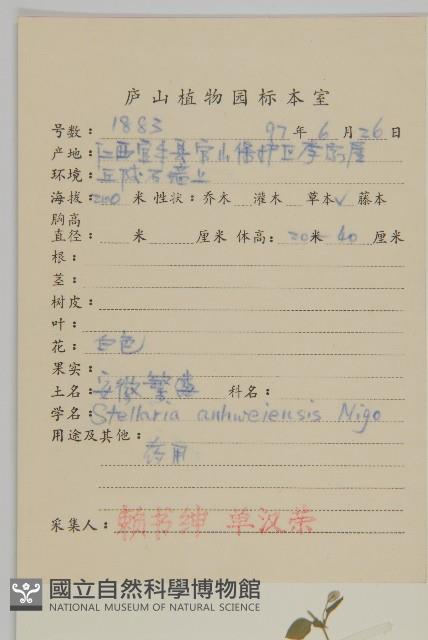 庐山植物园标本室
号数：1883 97年6月26日
产地：江西宜丰县官山保护区李家屋
环境：丘陵石墙上
海拔：200米 性状：乔木 灌木 草本✓ 藤本
胸高
直径： 米 厘米 体高：20米40厘米
根：
茎：
树皮：
叶：
花：白色
果实：
土名：安徽繁缕 科名：
学名：Stellaria anhweiensis Migo
用途及其他：
药用
采集人：赖书绅 单汉荣
國立自然科學博物館
NATIONAL MUSEUM OF NATURAL SCIENCE